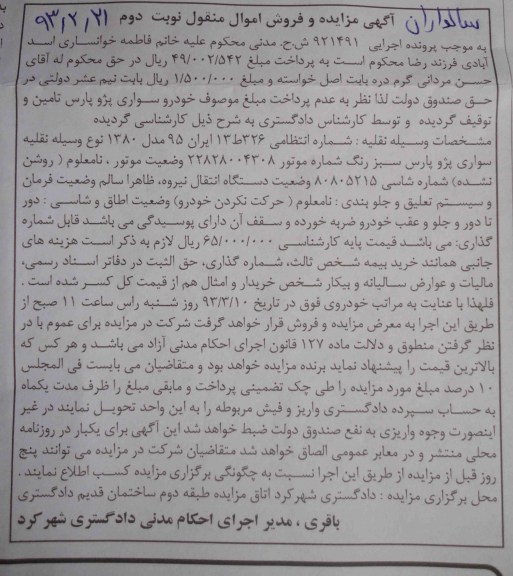 سالداران
۹۳/۲/۳۱
آگهی مزایده و فروش اموال منقول نوبت دوم
به موجب پرونده اجرایی ۹۲۱۴۹۱ ش.ج. مدنی محکوم علیه خانم فاطمه خوانساری اسد
آبادی فرزند رضا محکوم است به پرداخت مبلغ ۴۹/۰۰۲/۵۴۲ ریال در حق محکوم له آقای
حسن مردانی گرم دره بابت اصل خواسته و مبلغ ۱/۵۰۰/۰۰۰ ریال بابت نیم عشر دولتی در
حق صندوق دولت لذا نظر به عدم پرداخت مبلغ موصوف خودرو سواری پژو پارس تامین و
توقیف گردیده و توسط کارشناس دادگستری به شرح ذیل کارشناسی گردیده
مشخصات وسیله نقلیه : شماره انتظامی ۳۲۶ط۱۳ ایران ۹۵ مدل ۱۳۸۰ نوع وسیله نقلیه
سواری پژو پارس سبز رنگ شماره موتور ۲۲۸۲۸۰۰۴۳۰۸ وضعیت موتور ، نامعلوم ( روشن
نشده) شماره شاسی ۸۰۸۰۵۲۱۵ وضعیت دستگاه انتقال نیروه، ظاهرا سالم وضعیت فرمان
و سیستم تعلیق و جلو بندی : نامعلوم ( حرکت نکردن خودرو) وضعیت اطاق و شاسی : دور
تا دور و جلو و عقب خودرو ضربه خورده و سقف آن دارای پوسیدگی می باشد قابل شماره
گذاری: می باشد قیمت پایه کارشناسی ۶۵/۰۰۰/۰۰۰ ریال لازم به ذکر است هزینه های
جانبی همانند خرید بیمه شخص ثالث، شماره گذاری، حق الثبت در دفاتر اسناد رسمی،
مالیات و عوارض سالیانه و پیکار شخص خریدار و امثال هم از قیمت کل کسر شده است .
فلهذا با عنایت به مراتب خودروی فوق در تاریخ ۹۳/۳/۱۰ روز شنبه راس ساعت ۱۱ صبح از
طریق این اجرا به معرض مزایده و فروش قرار خواهد گرفت شرکت در مزایده برای عموم با در
نظر گرفتن منطوق و دلالت ماده ۱۲۷ قانون اجرای احکام مدنی آزاد می باشد و هر کس که
بالاترین قیمت را پیشنهاد نماید برنده مزایده خواهد بود و متقاضیان می بایست فی المجلس
۱۰ درصد مبلغ مورد مزایده را طی چک تضمینی پرداخت و مابقی مبلغ را ظرف مدت یکماه
به حساب سپرده دادگستری واریز و فیش مربوطه را به این واحد تحویل نمایند در غیر
اینصورت وجوه واریزی به نفع صندوق دولت ضبط خواهد شد این آگهی برای یکبار در روزنامه
محلی منتشر و در معابر عمومی الصاق خواهد شد متقاضیان شرکت در مزایده می توانند پنج
روز قبل از مزایده از طریق این اجرا نسبت به چگونگی برگزاری مزایده کسب اطلاع نمایند .
محل برگزاری مزایده : دادگستری شهرکرد اتاق مزایده طبقه دوم ساختمان قدیم دادگستری
باقری ، مدیر اجرای احکام مدنی دادگستری شهرکرد